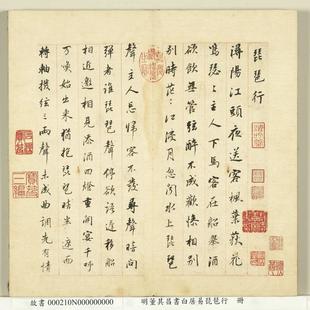 琵琶行
潯陽江頭夜送客楓葉荻花
秋瑟〻主人下馬客在船舉酒
欲飲無管絃醉不成歡慘將別
別時茫〻江浸月忽聞水上琵琶
聲主人忘歸客不發尋聲暗問
彈者誰琵琶聲停欲語遲移船
相近邀相見添酒回燈重開宴千呼
万喚始出來猶抱琵琶半遮面
轉軸撥絃三兩聲未成曲調先有情
故書 000210N000000000 明董其昌書白居易琵琶行 冊